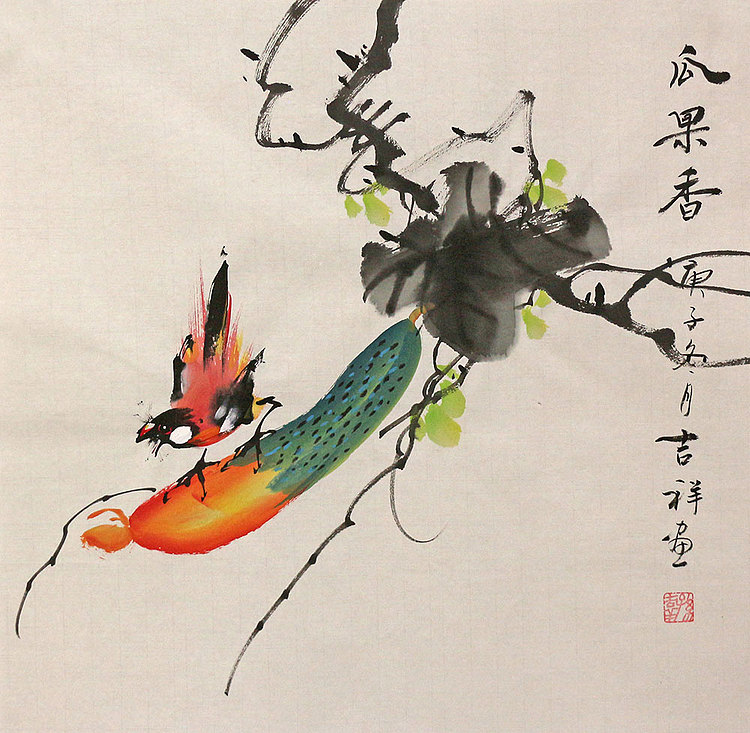 瓜果香
庚子冬月
吉祥画